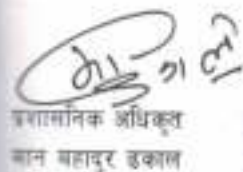 प्रशासनिक अधिकृत
मान बहादुर ढकाल